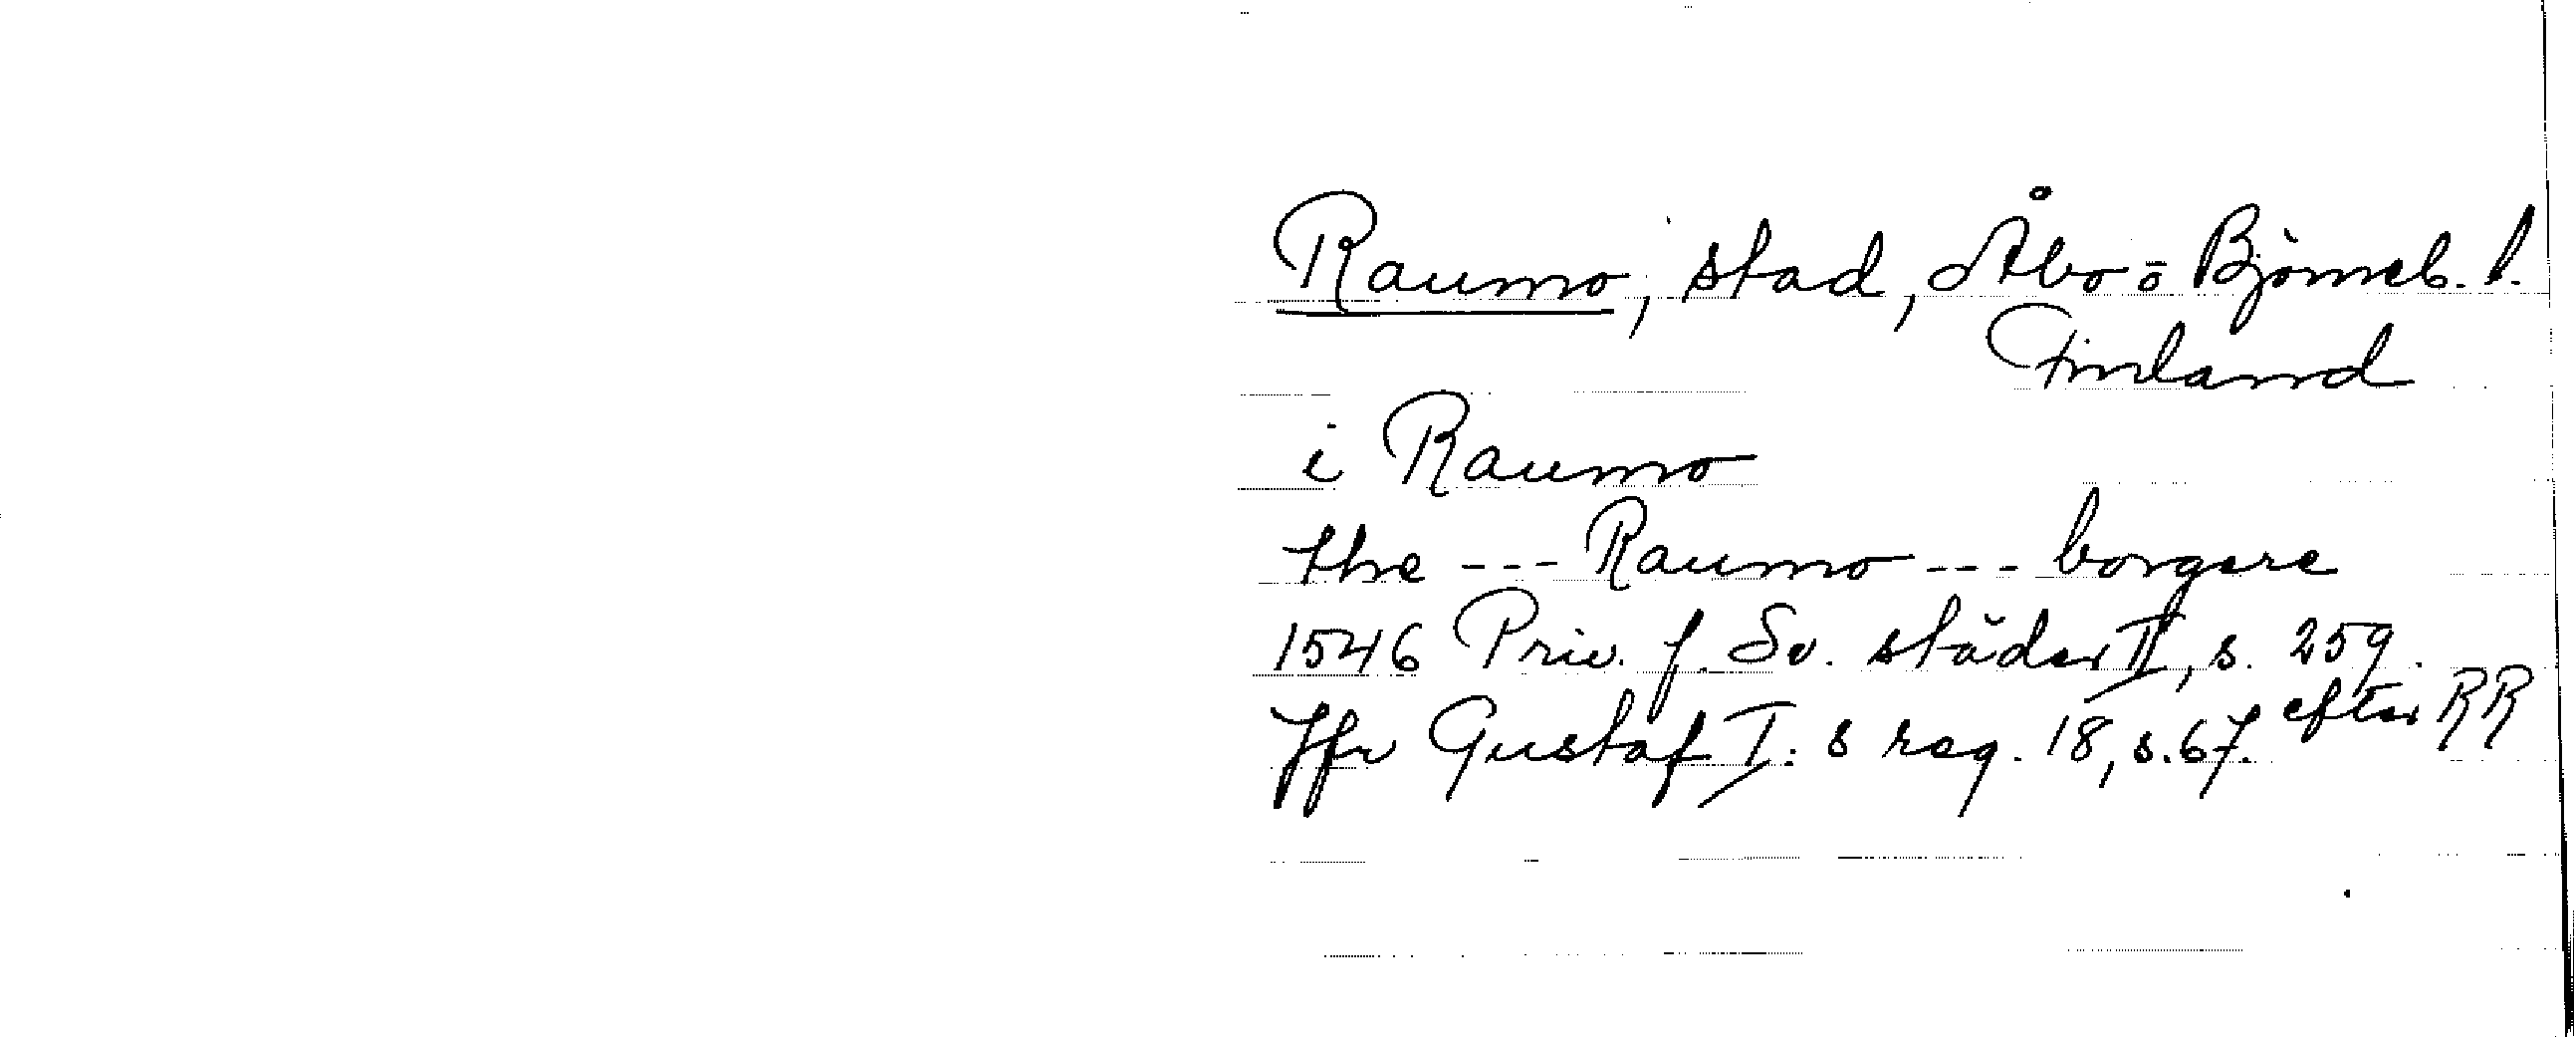 Raumo, stad, Åbo o Björneb. l.
Finland
i Raumo
the --- Raumo --- borgere
1546 Priv. f. Sv. städer II, s. 259.
Jfr Gustaf I:s reg. 18, s. 67. efter RR